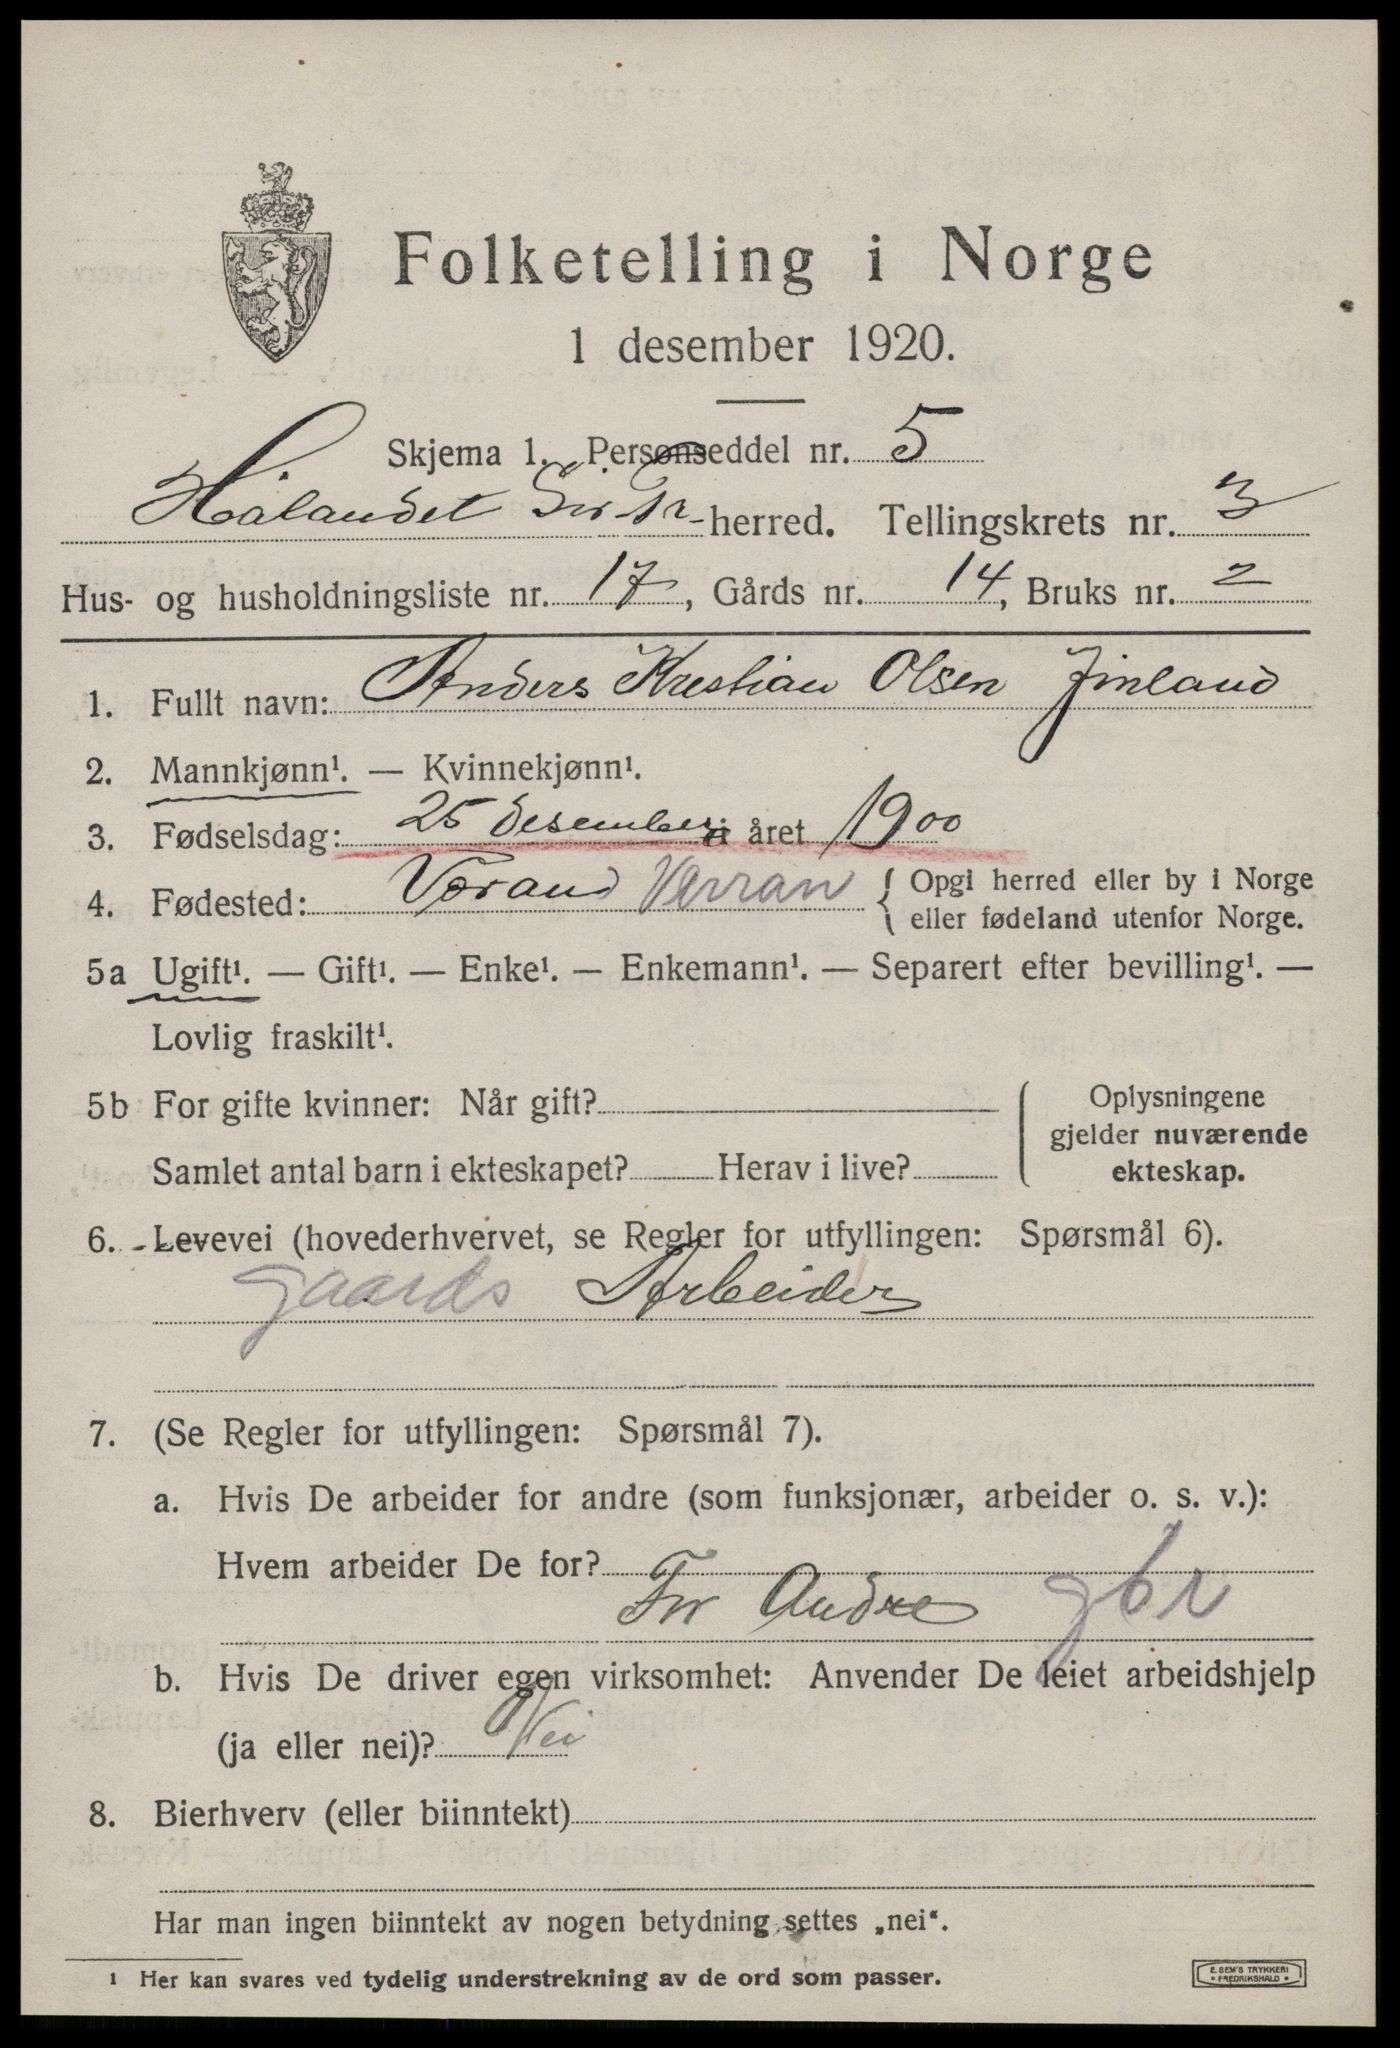 Folketelling i Norge
1 desember 1920.
Skjema 1. Personseddel nr. 5
Hålandet herred. Tellingskrets nr. 3
Hus- og husholdningsliste nr. 17, Gårds nr. 14, Bruks nr. 2
1. Fullt navn: Anders Kristian Olsen Finland
2. Mannkjønn¹. — Kvinnekjønn¹.
3. Fødselsdag: 25 desember i året 1900
4. Fødested: Vørand Verran { Opgi herred eller by i Norge
eller fødeland utenfor Norge.
5a Ugift¹. — Gift¹. — Enke¹. — Enkemann¹. — Separert efter bevilling¹. —
Lovlig fraskilt¹.
5b For gifte kvinner: Når gift?
Samlet antal barn i ekteskapet? Herav i live?
Oplysningene
gjelder nuværende
ekteskap.
6. Levevei (hovederhvervet, se Regler for utfyllingen: Spørsmål 6).
gaards Arbeider
7. (Se Regler for utfyllingen: Spørsmål 7).
a. Hvis De arbeider for andre (som funksjonær, arbeider o. s. v.):
Hvem arbeider De for?
For Andre gbr
b. Hvis De driver egen virksomhet: Anvender De leiet arbeidshjelp
(ja eller nei)? Nei
8. Bierhverv (eller biinntekt)
Har man ingen biinntekt av nogen betydning settes „nei“.
¹ Her kan svares ved tydelig understrekning av de ord som passer.
E. SEM'S TRYKKERI
* FREDRIKSHALD *